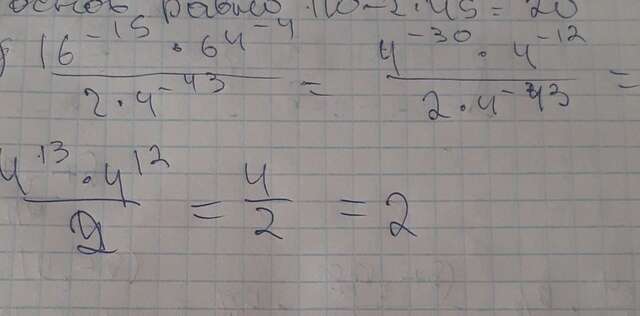 основ равно 110-2·45=20
16⁻¹⁵ · 64⁻⁴ / 2·4⁻⁴³ = 4⁻³⁰ · 4⁻¹² / 2·4⁻⁴³ =
4¹³ · 4¹² / 2 = 4/2 = 2